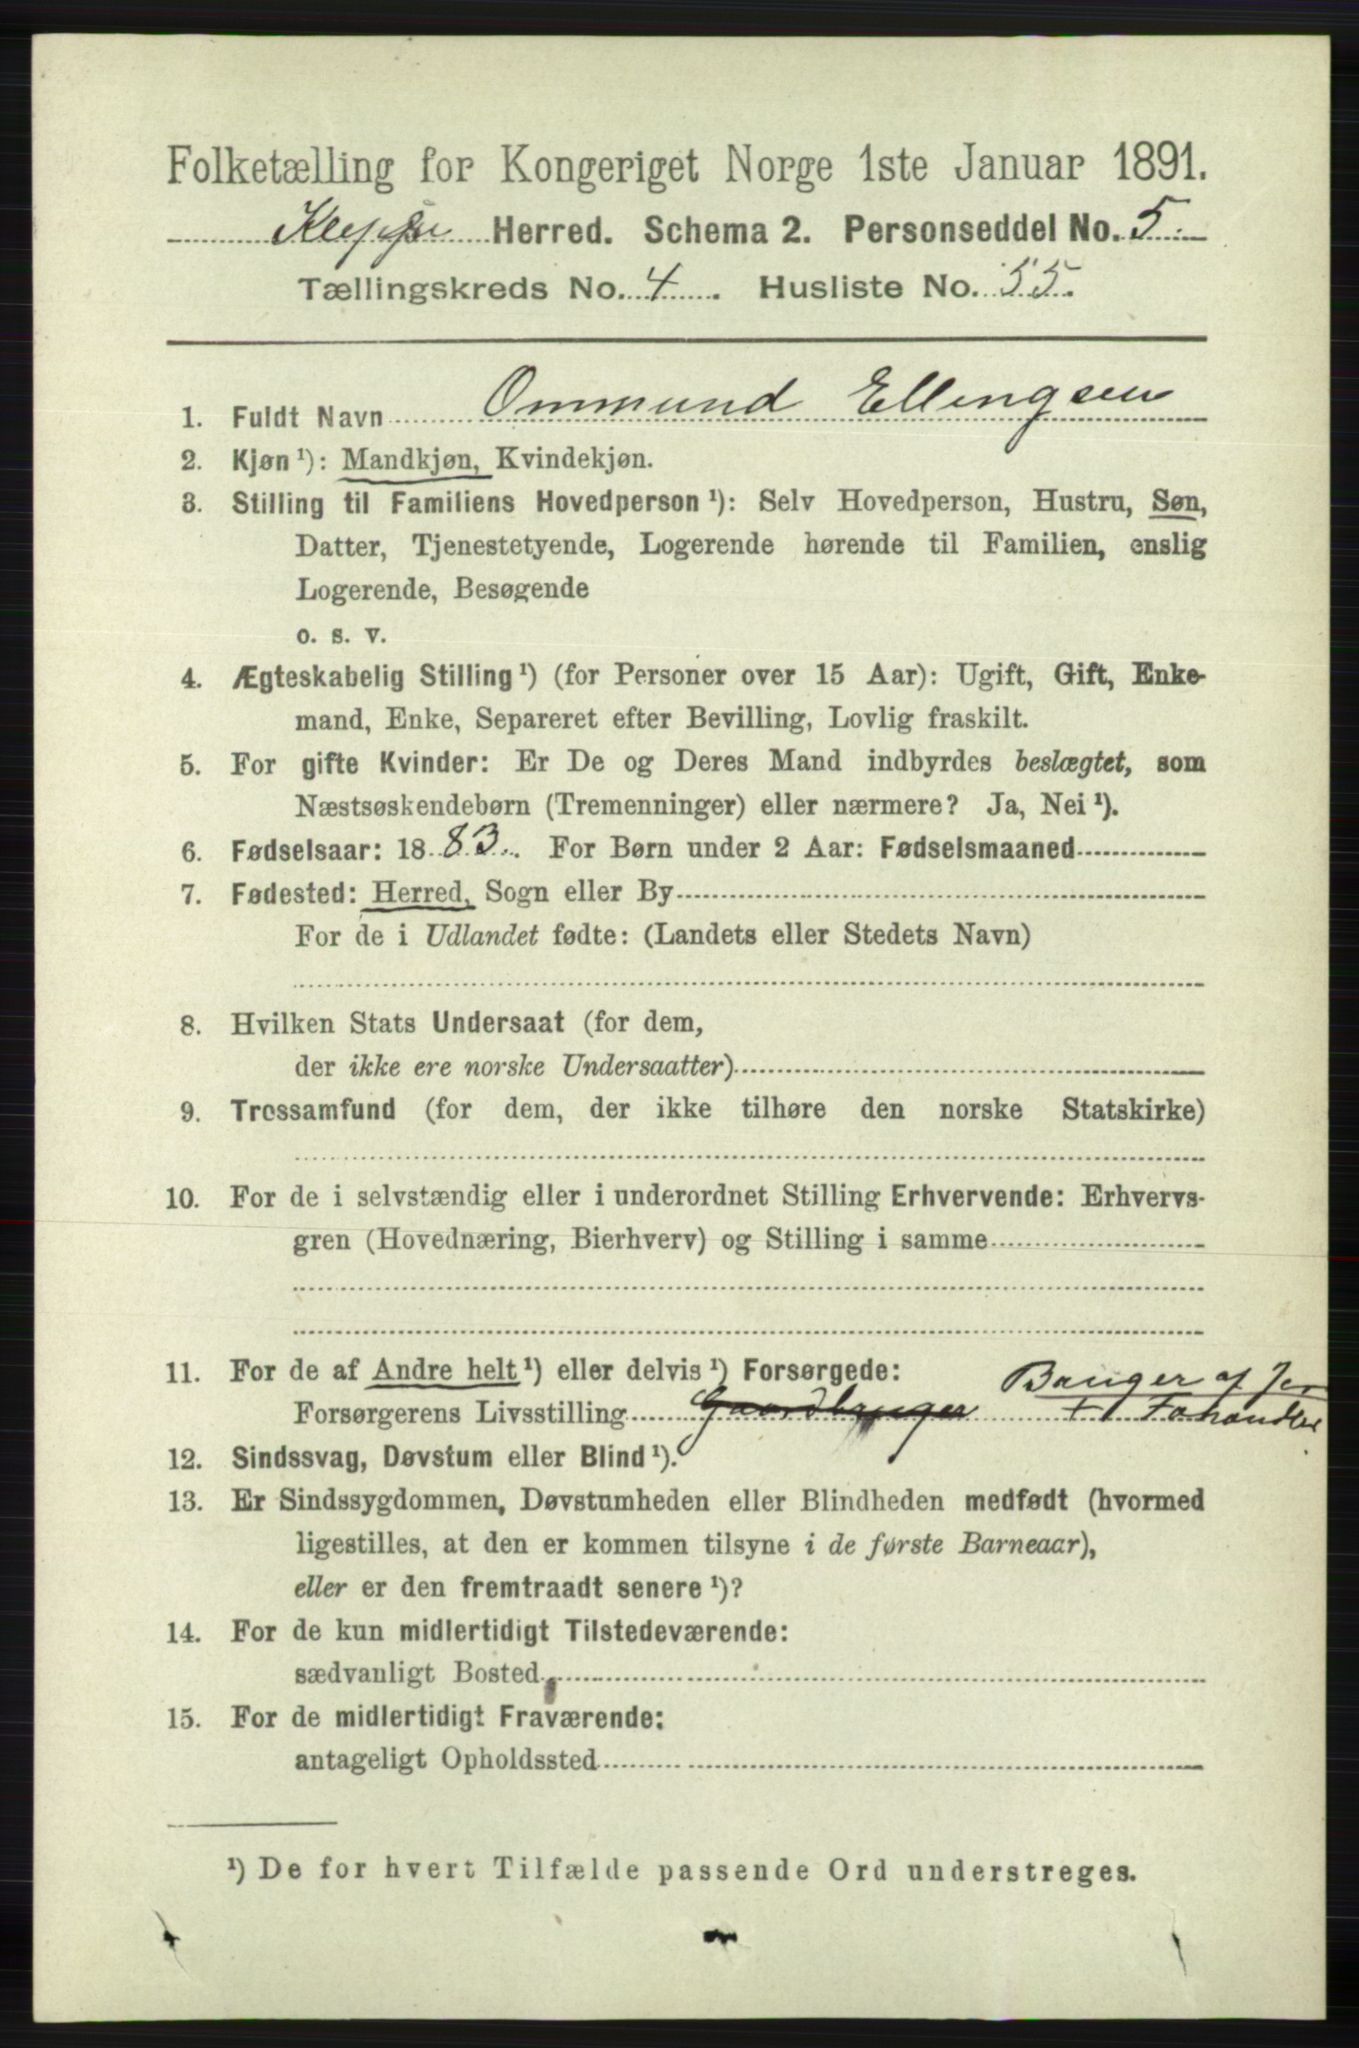 Folketælling for Kongeriget Norge 1ste Januar 1891.
Kleppe Herred. Schema 2. Personseddel No. 5.
Tællingskreds No. 4. Husliste No. 55.
1. Fuldt Navn Ommund Ellingsen
2. Kjøn ¹): Mandkjøn, Kvindekjøn.
3. Stilling til Familiens Hovedperson ¹): Selv Hovedperson, Hustru, Søn,
Datter, Tjenestetyende, Logerende hørende til Familien, enslig
Logerende, Besøgende
o. s. v.
4. Ægteskabelig Stilling ¹) (for Personer over 15 Aar): Ugift, Gift, Enke-
mand, Enke, Separeret efter Bevilling, Lovlig fraskilt.
5. For gifte Kvinder: Er De og Deres Mand indbyrdes beslægtet, som
Næstsøskendebørn (Tremenninger) eller nærmere? Ja, Nei ¹).
6. Fødselsaar: 1883. For Børn under 2 Aar: Fødselsmaaned
7. Fødested: Herred, Sogn eller By
For de i Udlandet fødte: (Landets eller Stedets Navn)
8. Hvilken Stats Undersaat (for dem,
der ikke ere norske Undersaatter)
9. Trossamfund (for dem, der ikke tilhøre den norske Statskirke)
10. For de i selvstændig eller i underordnet Stilling Erhvervende: Erhvervs-
gren (Hovednæring, Bierhverv) og Stilling i samme
11. For de af Andre helt ¹) eller delvis ¹) Forsørgede: Bruger af Jor
Forsørgerens Livsstilling Gaardbruger + Fahandler
12. Sindssvag, Døvstum eller Blind ¹).
13. Er Sindssygdommen, Døvstumheden eller Blindheden medfødt (hvormed
ligestilles, at den er kommen tilsyne i de første Barneaar),
eller er den fremtraadt senere ¹)?
14. For de kun midlertidigt Tilstedeværende:
sædvanligt Bosted
15. For de midlertidigt Fraværende:
antageligt Opholdssted
¹) De for hvert Tilfælde passende Ord understreges.